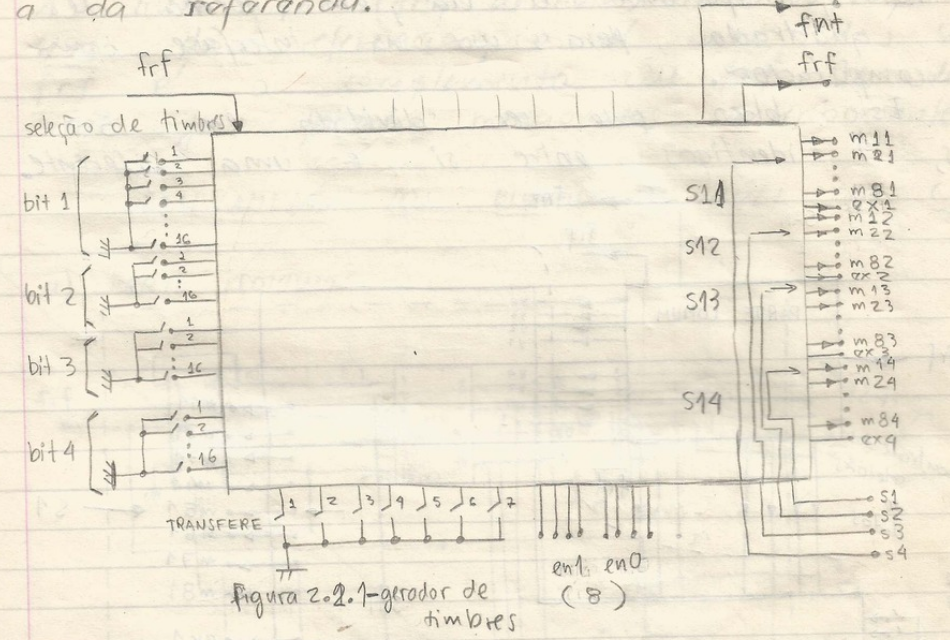 a da referência.
frf
fnt
frf
seleção de timbres
bit 1
1
2
3
4
16
bit 2
1
2
16
bit 3
1
2
16
bit 4
1
2
16
S11
S12
S13
S14
m11
m21
m81
ex1
m12
m22
m82
ex2
m13
m23
m83
ex3
m14
m24
m84
ex4
S1
S2
S3
S4
TRANSFERE
1 2 3 4 5 6 7
en1 en0
(8)
figura 2.2.1-gerador de
timbres